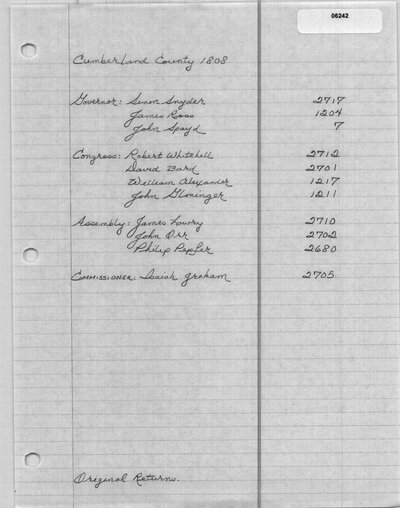 06242
Cumberland County 1808
Governor: Simon Snyder 2717
James Ross 1204
John Spayd 7
Congress: Robert Whitehill 2712
David Bard 2701
William Alexander 1217
John Gloninger 1211
Assembly: James Lowry 2710
John Orr 2702
Philip Pepfer 2680
Commissioner. Isaiah Graham 2705
Original Returns.